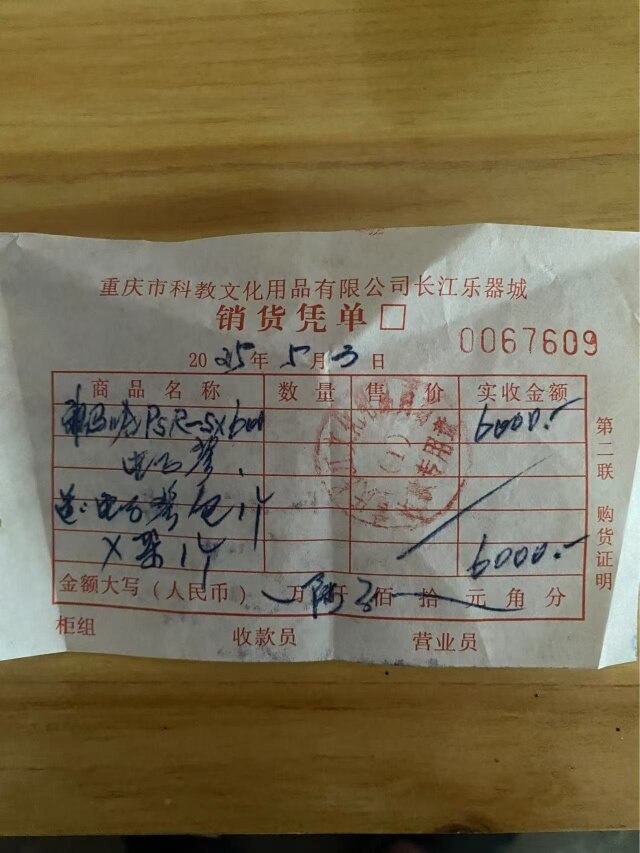 重庆市科教文化用品有限公司长江乐器城
销货凭单□
0067609
2025年5月3日
商品名称 数量 售价 实收金额
雅马哈PSR-SX600 6000.-
电子琴
送:电子琴包1个
X架1个 6000.-
金额大写(人民币) 万陆仟佰拾元角分
柜组 收款员 营业员
第二联 购货证明
专用章
(1)